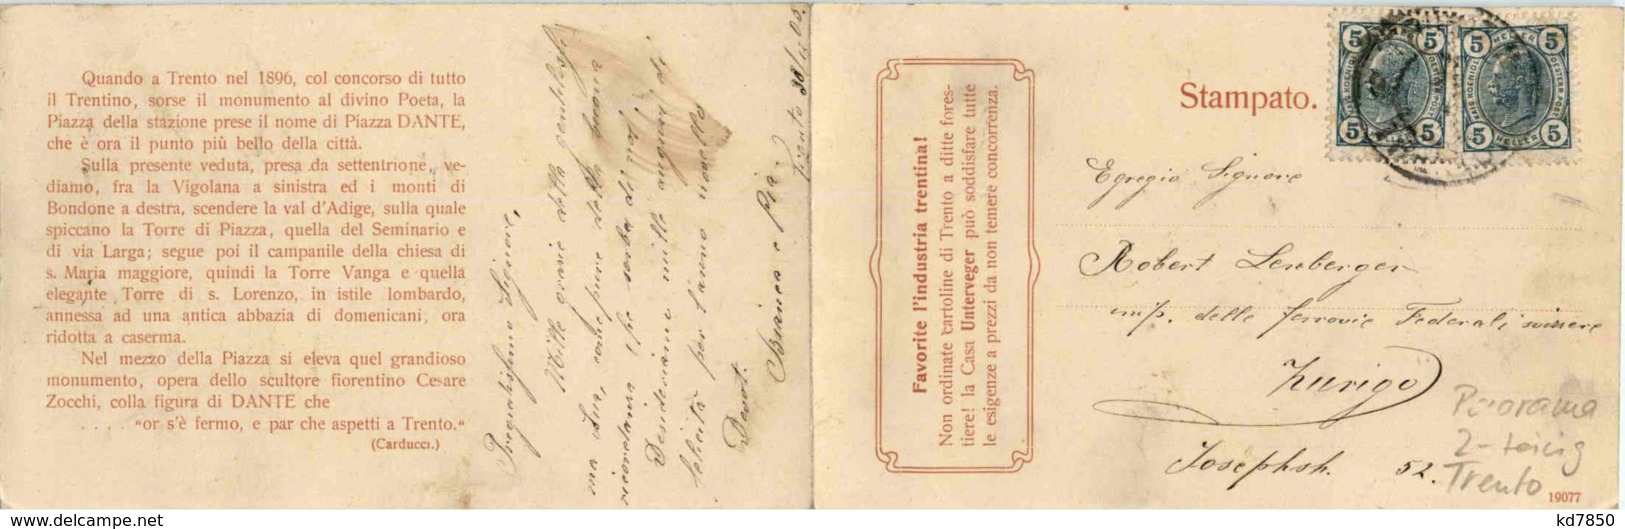 Quando a Trento nel 1896, col concorso di tutto
il Trentino, sorse il monumento al divino Poeta, la
Piazza della stazione prese il nome di Piazza DANTE,
che è ora il punto più bello della città.
Sulla presente veduta, presa da settentrione, ve-
diamo, fra la Vigolana a sinistra ed i monti di
Bondone a destra, scendere la val d'Adige, sulla quale
spiccano la Torre di Piazza, quella del Seminario e
di via Larga; segue poi il campanile della chiesa di
s. Maria maggiore, quindi la Torre Vanga e quella
elegante Torre di s. Lorenzo, in istile lombardo,
annessa ad una antica abbazia di domenicani, ora
ridotta a caserma.
Nel mezzo della Piazza si eleva quel grandioso
monumento, opera dello scultore fiorentino Cesare
Zocchi, colla figura di DANTE che
. . . . "or s'è fermo, e par che aspetti a Trento."
(Carducci.)
Trento
Pregiatissimo Signore,
Mille grazie della gentilissi
ma Sua, come pure della buona
ricordanza che serba di noi!
Desideriamo mille auguri di
felicità per l'anno novello
Devot.
Bianca e Pia
Favorite l'industria trentina!
Non ordinate cartoline di Trento a ditte fores-
tiere! la Casa Unterveger può soddisfare tutte
le esigenze a prezzi da non temere concorrenza.
Stampato.
5 5 5 5
HELLER
5 5 5 5
HELLER
Egregio Signore
Robert Lenberger
imp. delle ferrovie Federali svizzere
Zurigo
Josephsh. 52.
Panorama
2-teilig
Trento
19077
kd7850